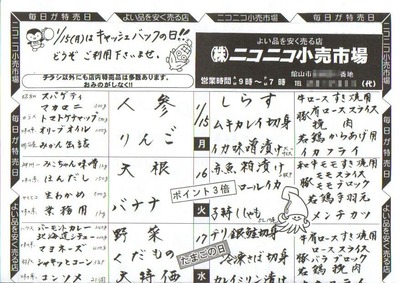 毎日が特売日
1/15(月)はキャッシュバックの日!!
どうぞ ご利用下さいませ。
チラシ以外にも店内特売品は多数あります。
おみのがしなく!!
よい品を安く売る店
㈱ニコニコ小売市場
営業時間 9時〜 7時
館山市 番地
TEL (代)
よい品を安く売る店
毎日が特売日
スパゲティ
マカロニ
トマトケチャップ
オリーブオイル
みかん缶詰
みこちゃん味噌
ほんだし
生わかめ
業務用
バーモントカレー
北海道シチュー
マヨネーズ
シャキッとコーン
コンソメ
人参
りんご
大根
バナナ
野菜
くだもの
大特価
1/15
月
16
火
17
しらす
ムキカレイ切身
イカ味噌漬け
赤魚粕漬け
ロールイカ
子持ししゃも
チリ銀鮭切身
冷凍さば切身
カレイミリン漬け
ポイント3倍
たまごの日
牛ロースすき焼用
豚ローススライス
挽肉
若鶏からあげ用
イカフライ
和牛モモすき焼用
豚モモスライス
豚モモブロック
若鶏手羽元
メンチカツ
牛肩ロースすき焼用
ローススライス
豚バラブロック
毎日が特売日
よい品を安く売る店